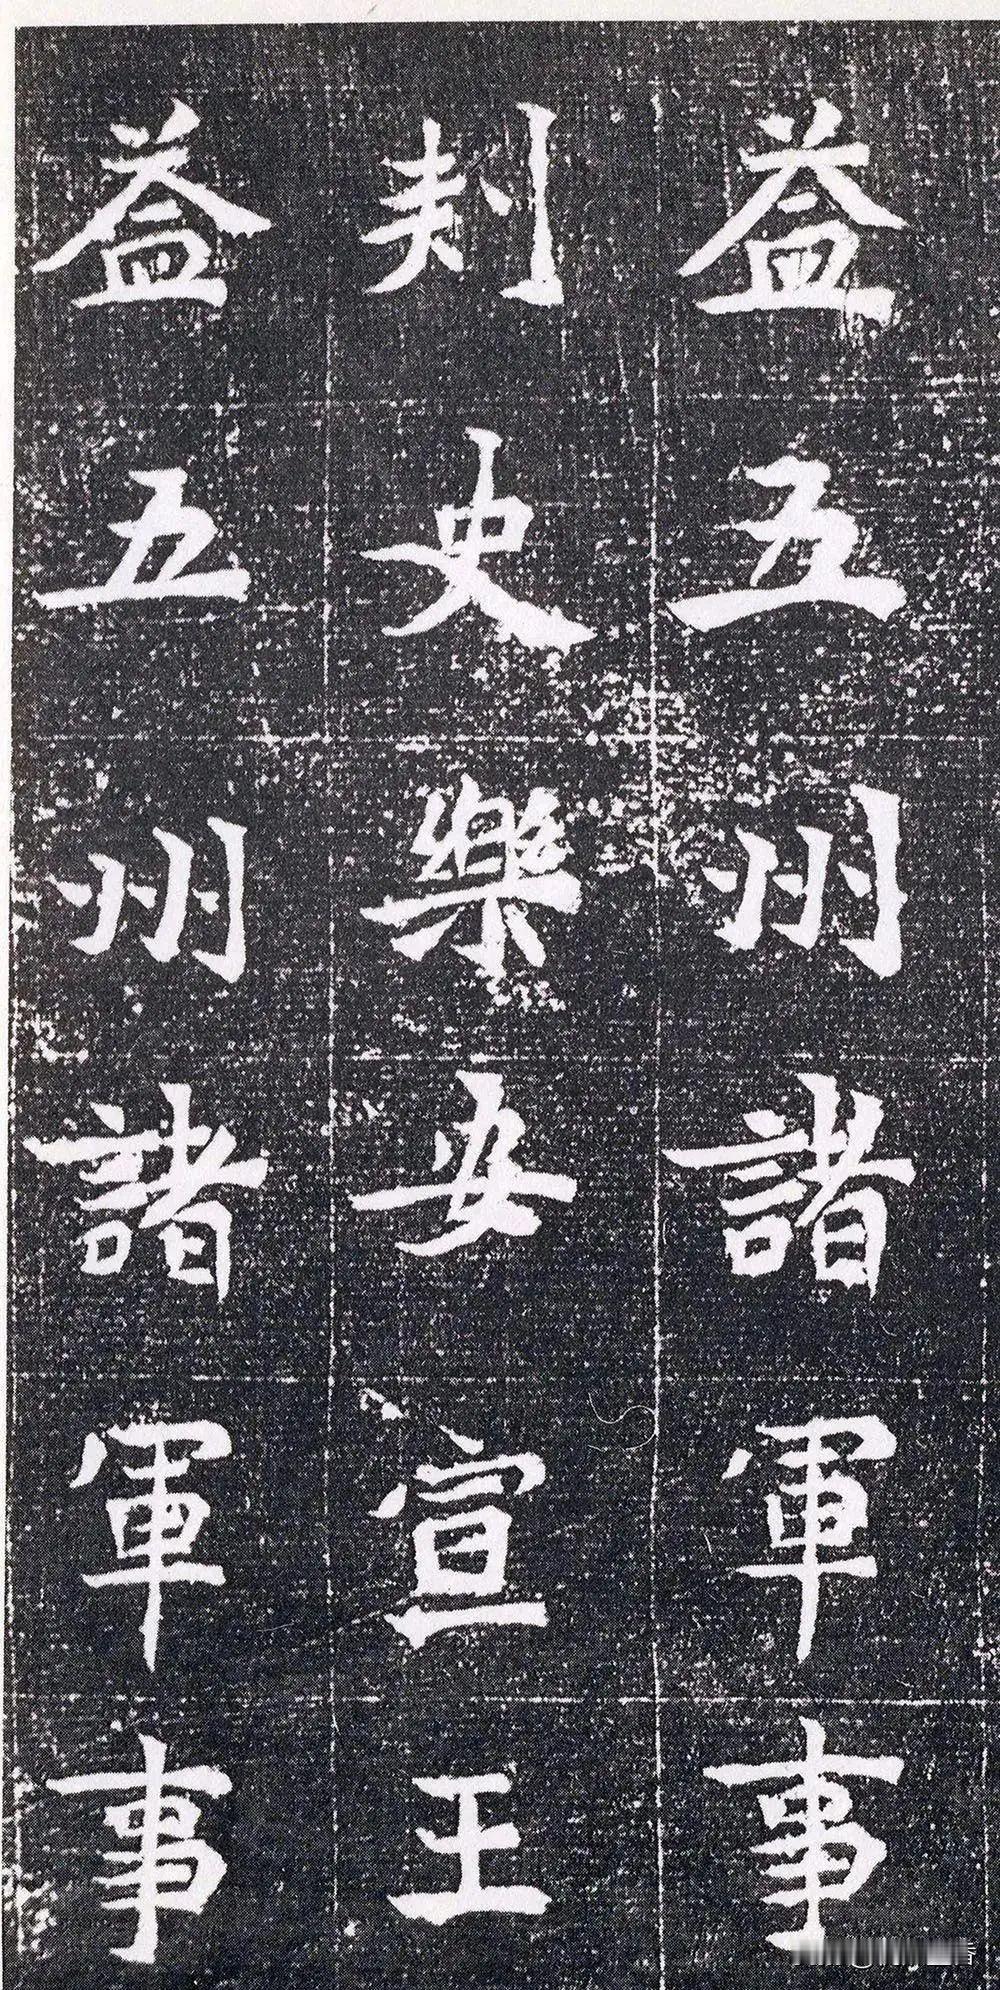 益五州諸軍事
刺史樂安宣王
益五州諸軍事